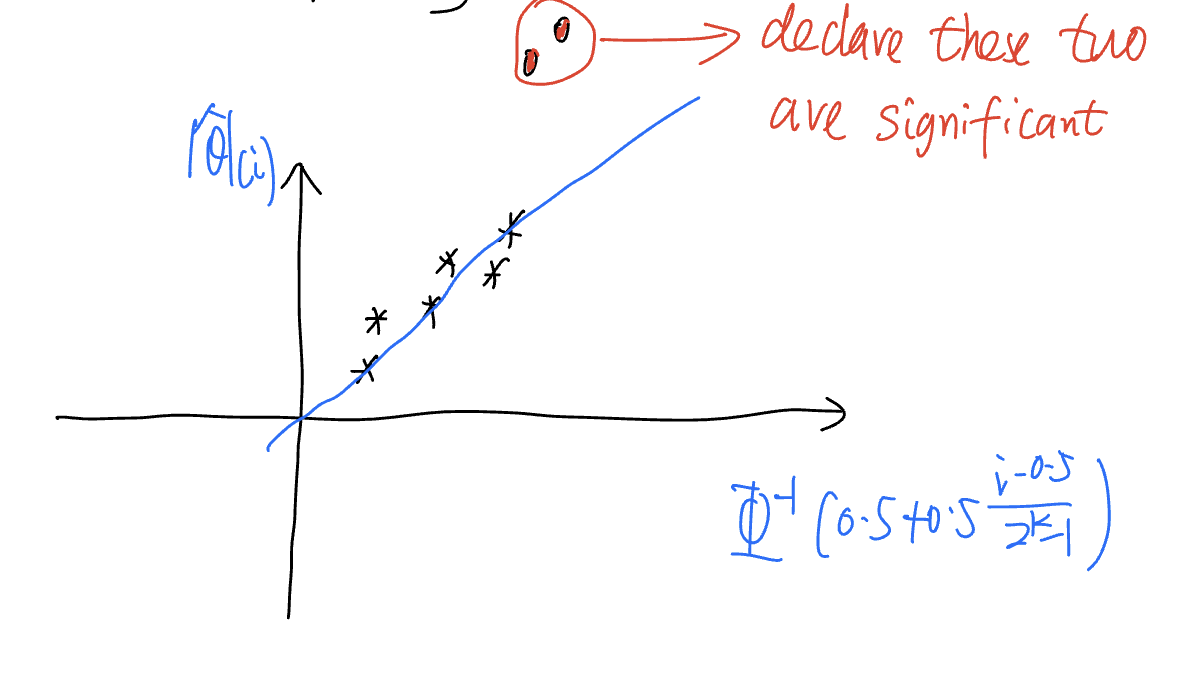 declare these two
are significant
|θ̂|(i)
Φ⁻¹(0.5+0.5 (i-0.5)/(2ᵏ-1))